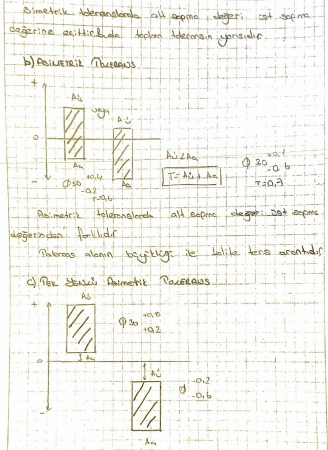 Simetrik toleranslarda alt sapma değeri üst sapma
değerine eşittir toplam toleransın yarısıdır.
b) ASİMETRİK TOLERANS
+
Aü
veya
Aü
0
Aü < Aa
T = Aü + Aa
Ø30
-0,6
T=0,7
-
Aa
Aa
Ø30 +0,4
-0,2
T=0,6
Asimetrik toleranslarda alt sapma değeri üst sapma
değerinden farklıdır
Tolerans alanın büyüklüğü ile kalite ters orantılıdır
c) TEK YÖNLÜ Asimetrik TOLERANS
Aü
+
Ø30 +0,8
+0,2
Aa
0
Aü
Ø -0,2
-0,6
-
Aa